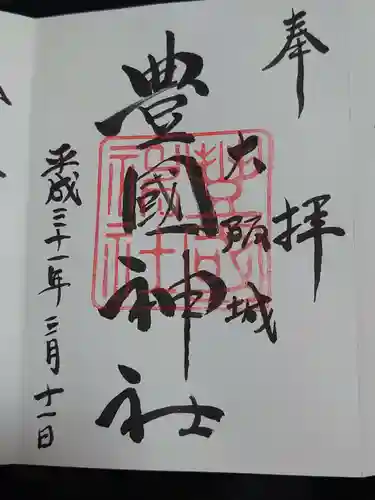 奉拝
大阪城
豊國神社
平成三十一年二月十一日